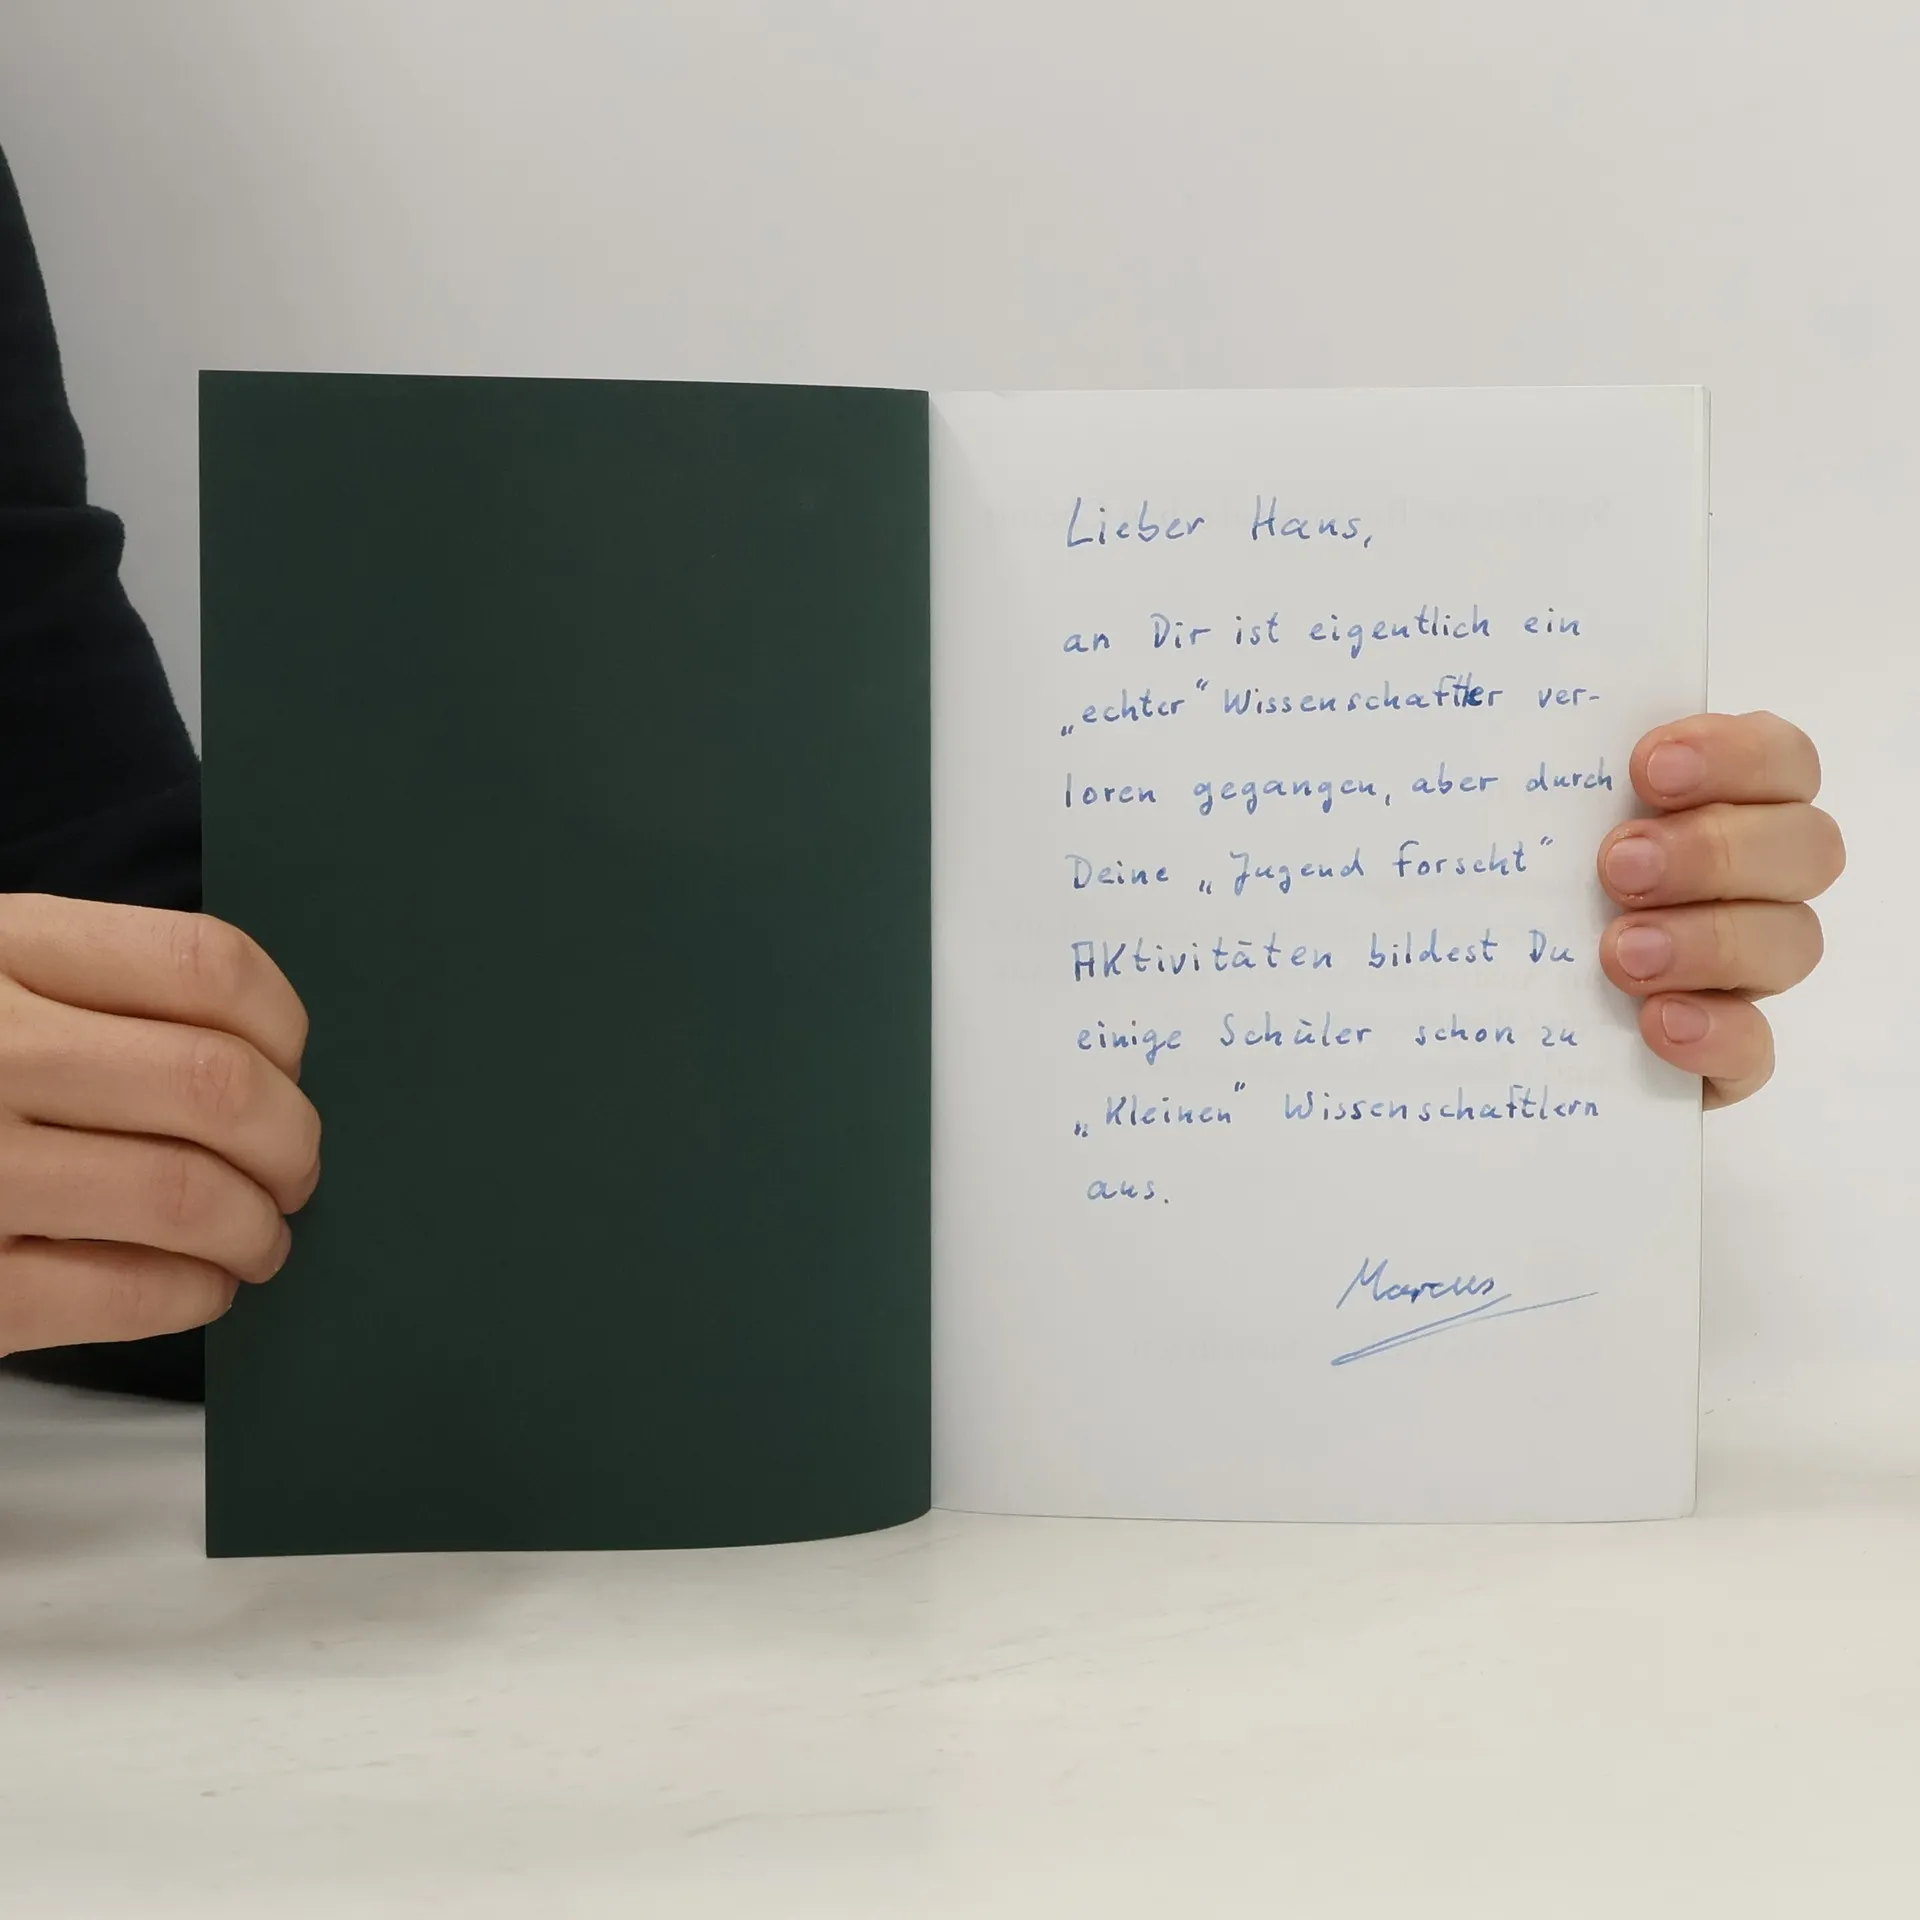 Lieber Hans,
an Dir ist eigentlich ein
„echter“ Wissenschaftler ver-
loren gegangen, aber durch
Deine „Jugend forscht“
Aktivitäten bildest Du
einige Schüler schon zu
„Kleinen“ Wissenschaftlern
aus.
Marcus